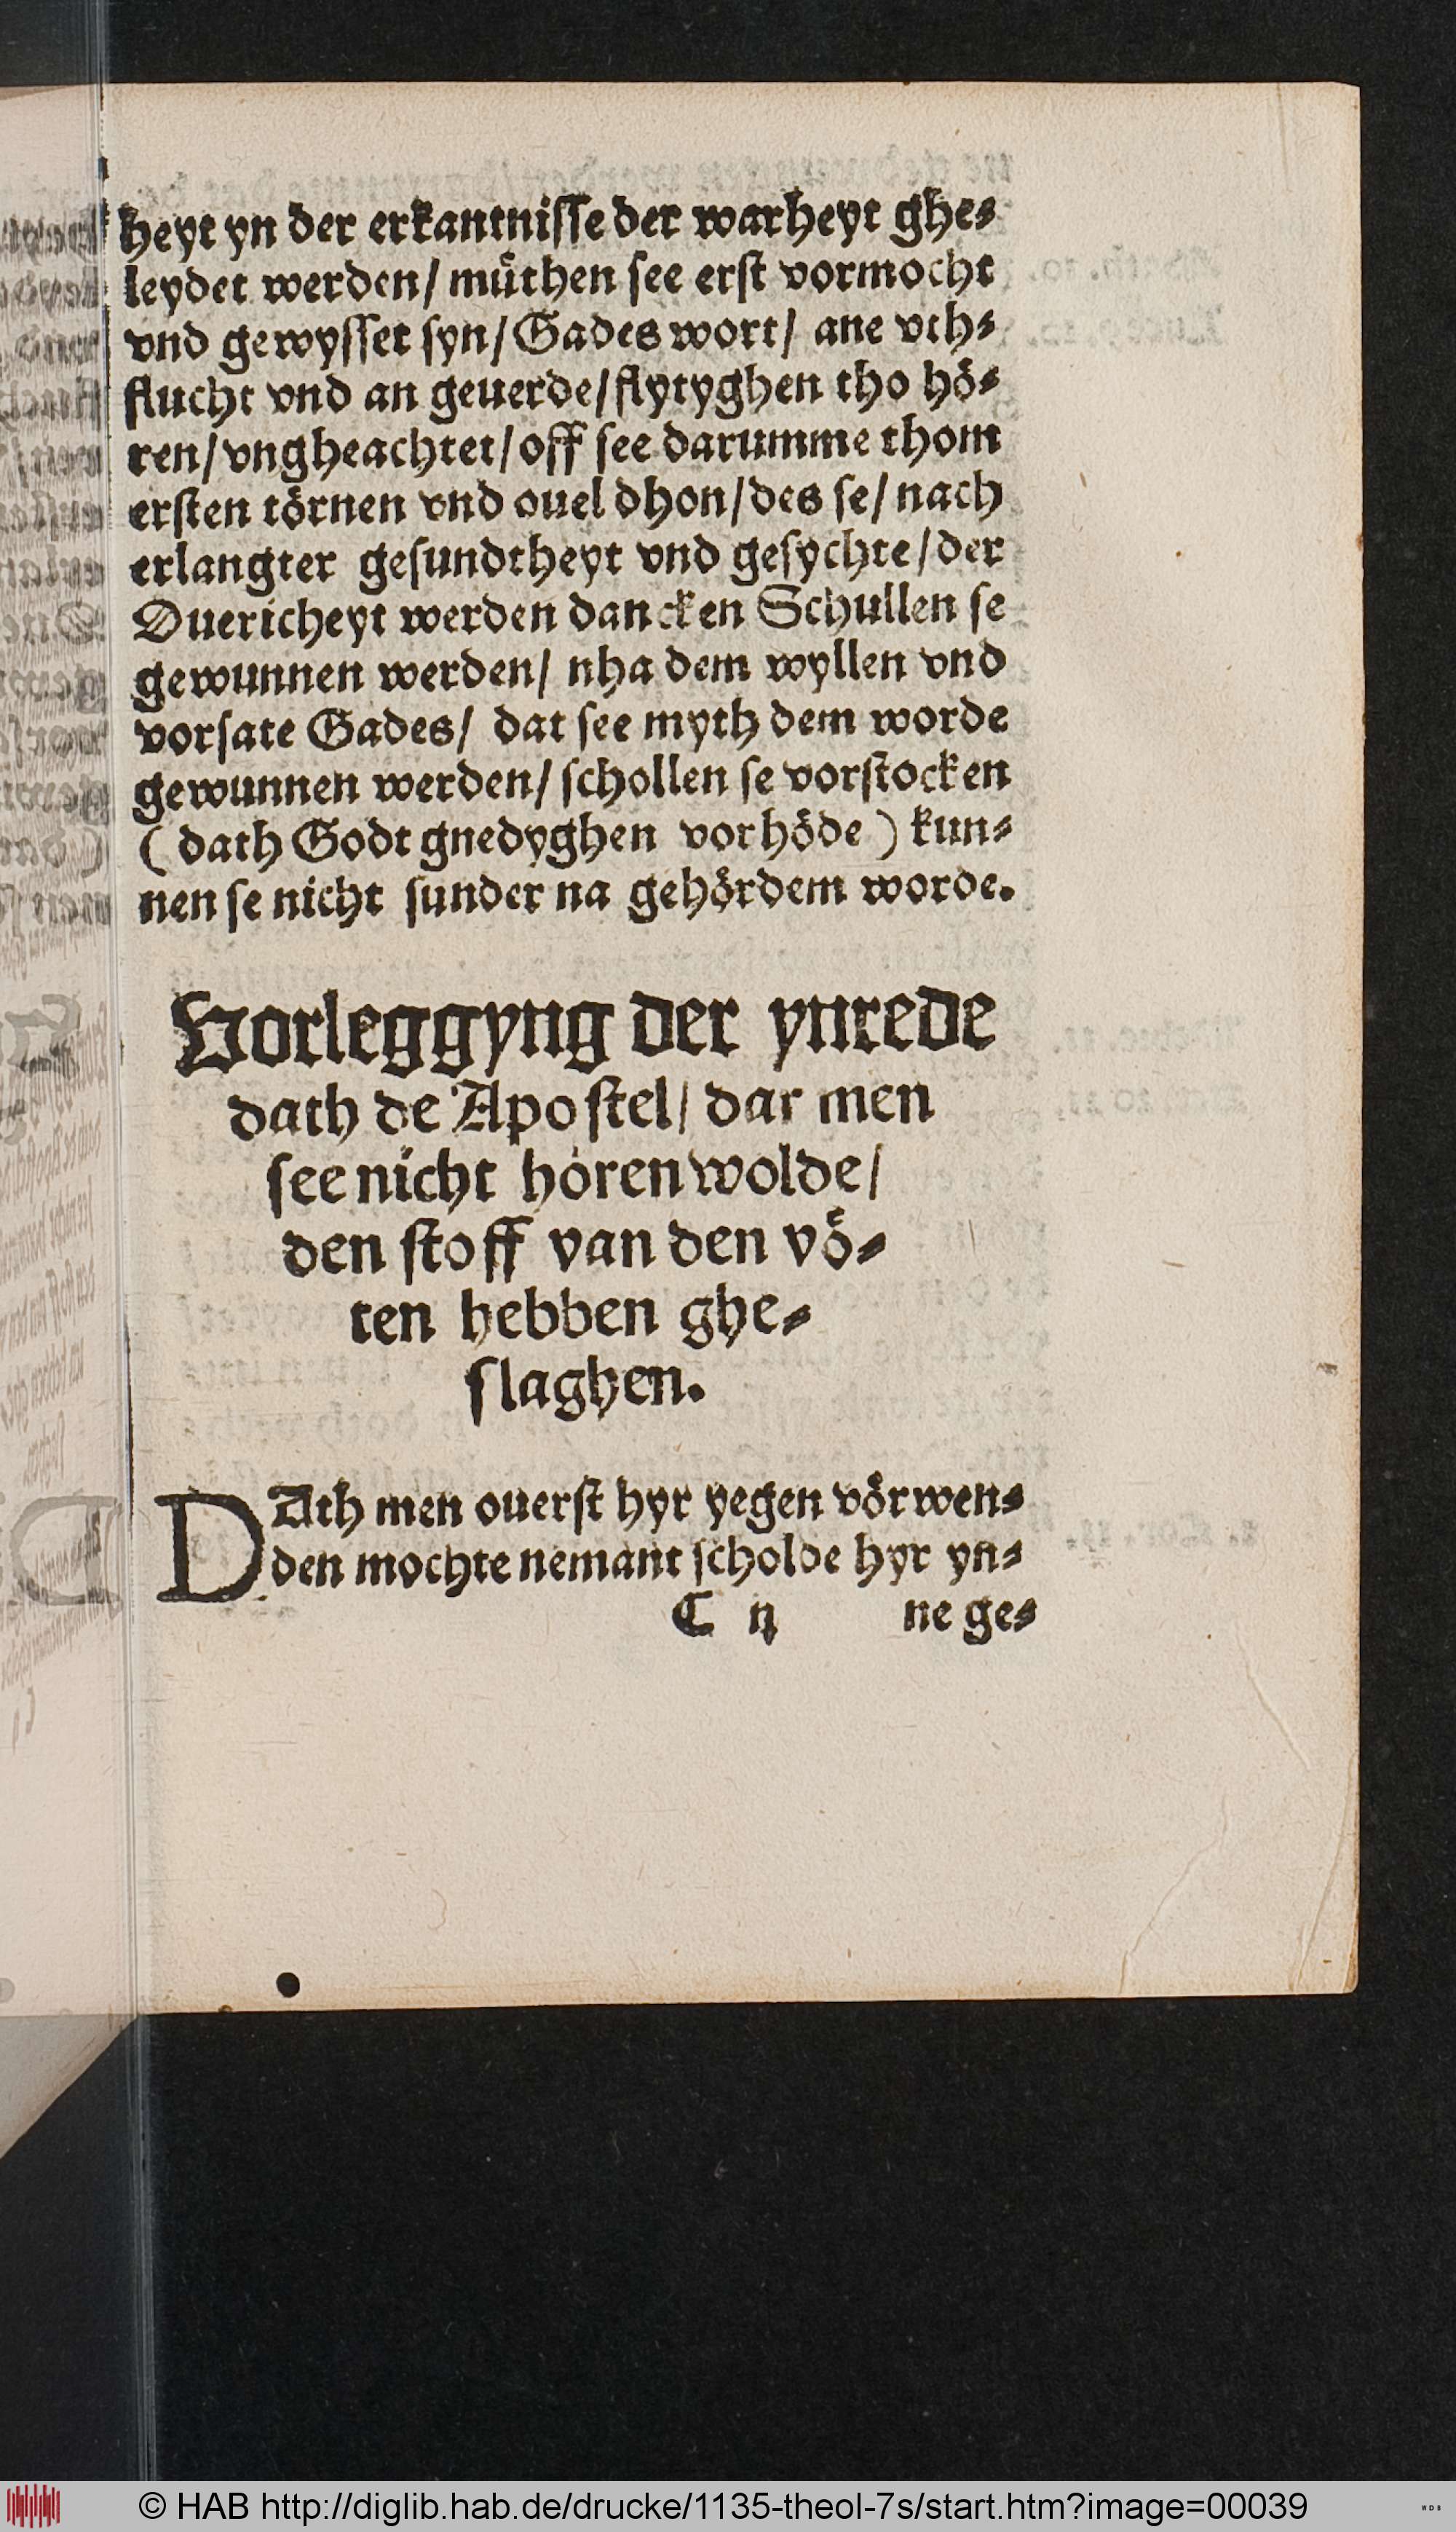 heyt yn der erkantnisse der warheyt ghe⸗
leydet werden/ müthen see erst vormocht
vnd gewysset syn/ Gades wort/ ane vth⸗
flucht vnd an geuerde/ flytyghen tho hö⸗
ren/ vngheachtet/ off see darumme thom
ersten törnen vnd ouel dhon/ des se/ nach
erlangter gesundtheyt vnd gesychte/ der
Ouericheyt werden dancken Schullen se
gewunnen werden/ nha dem wyllen vnd
vorsate Gades/ dat see myth dem worde
gewunnen werden/ schollen se vorstocken
( dath Godt gnedyghen vorhöde ) kun⸗
nen se nicht sunder na gehördem worde.
Vorleggyng der ynrede
dath de Apostel/ dar men
see nicht hören wolde/
den stoff van den vö⸗
ten hebben ghe⸗
slaghen.
DAth men ouerst hyr yegen vörwen⸗
den mochte nemant scholde hyr yn⸗
C ij ne ge⸗
© HAB http://diglib.hab.de/drucke/1135-theol-7s/start.htm?image=00039
WDB